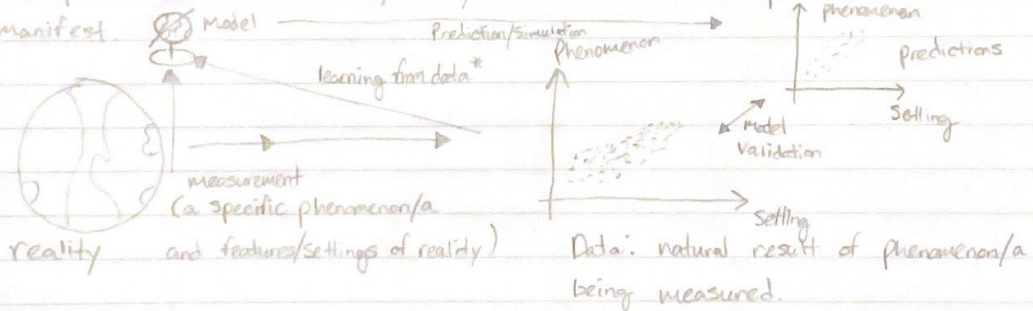 manifest.
model
Prediction/simulation
phenomenon
predictions
setting
learning from data*
Phenomenon
model
validation
measurement
(a specific phenomenon/a
and features/settings of reality)
reality
setting
Data: natural result of phenomenon/a
being measured.